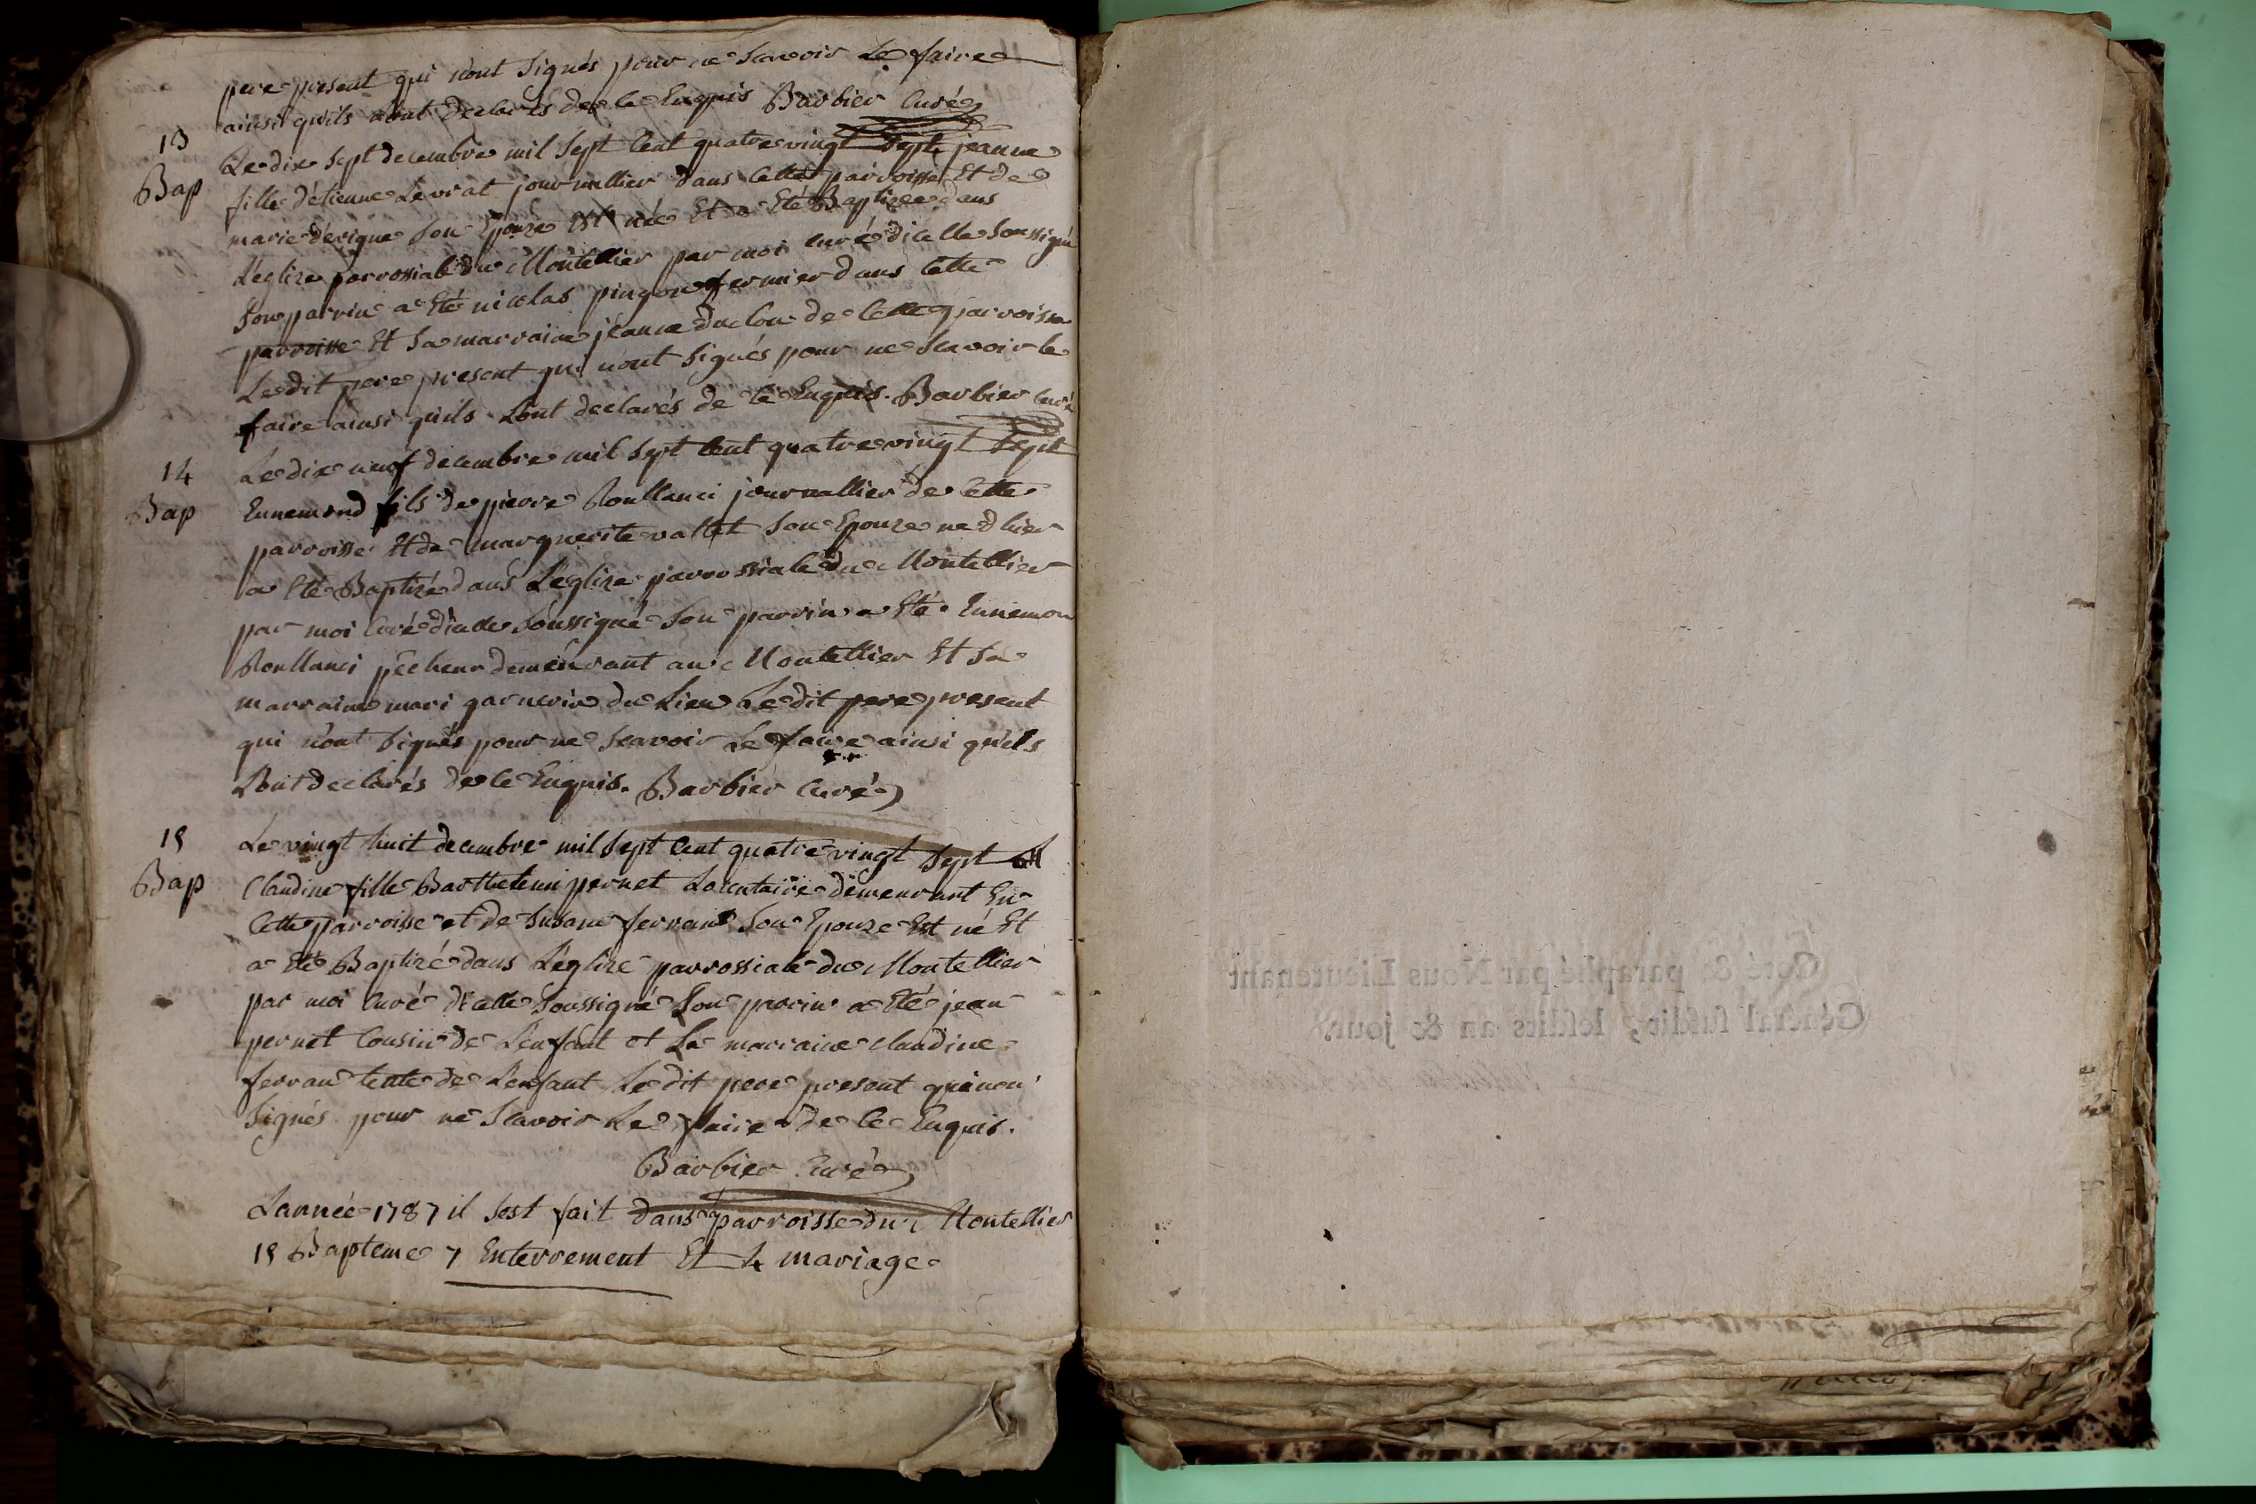 pere present qui n'ont signés pour ne scavoir le faire
ainsi qu'ils l'ont declarés de ce Enquis Barbier Curé
13
Bap
Le dix sept decembre mil sept Cent quatre vingt sept jeanne
fille d'étienne Levrat journallier dans Cette parroisse Et de
marie devigne son Epouze Est née Et a Eté Baptizée dans
L'eglize parrossiale du Montellier par moi curé dicelle soussigné
son parrin a Eté nicolas pingon fermier dans Cette
parroisse Et sa marraine jeanne duclou de Cette parroisse
Le dit pere present qui n'ont signés pour ne scavoir le
faire ainsi qu'ils L'ont declarés de ce Enquis. Barbier Curé
14
Bap
Le dix neuf decembre mil sept Cent quatre vingt sept
Ennemond fils de pierre Roullanci journallier de Cette
parroisse Et de marguerite vallet son Epouze ne d'hier
a Eté Baptizé dans L'eglize parrossiale du Montellier
par moi Curé dicelle soussigné son parrin a Eté Ennemon
Roullanci pêcheur demeurant au Montellier Et sa
marraine mari garnerin du Lieu Le dit pere present
qui n'ont signés pour ne scavoir Le faire ainsi qu'ils
L'ont declarés de ce Enquis. Barbier Curé
15
Bap
Le vingt huit decembre mil sept Cent quatre vingt sept
Claudine fille Barthelemi pernet Locataire demeurant En
Cette parroisse et de Susane ferrand son Epouze Est né Et
a Eté Baptizé dans L'eglize parrossiale du Montellier
par moi Curé dicelle soussigné son parrin a Eté jean
pernet Cousin de L'enfant et La marraine claudine
ferran tente de L'enfant Le dit pere present qui non
signés pour ne scavoir Le faire de ce Enquis.
Barbier Curé
L'année 1787 il s'est fait dans parroisse du Montellier
15 Bapteme 7 Enterrement Et 4 mariage
Coté & paraphé par Nous Lieutenant
Général susdit, lesdits an & jour.